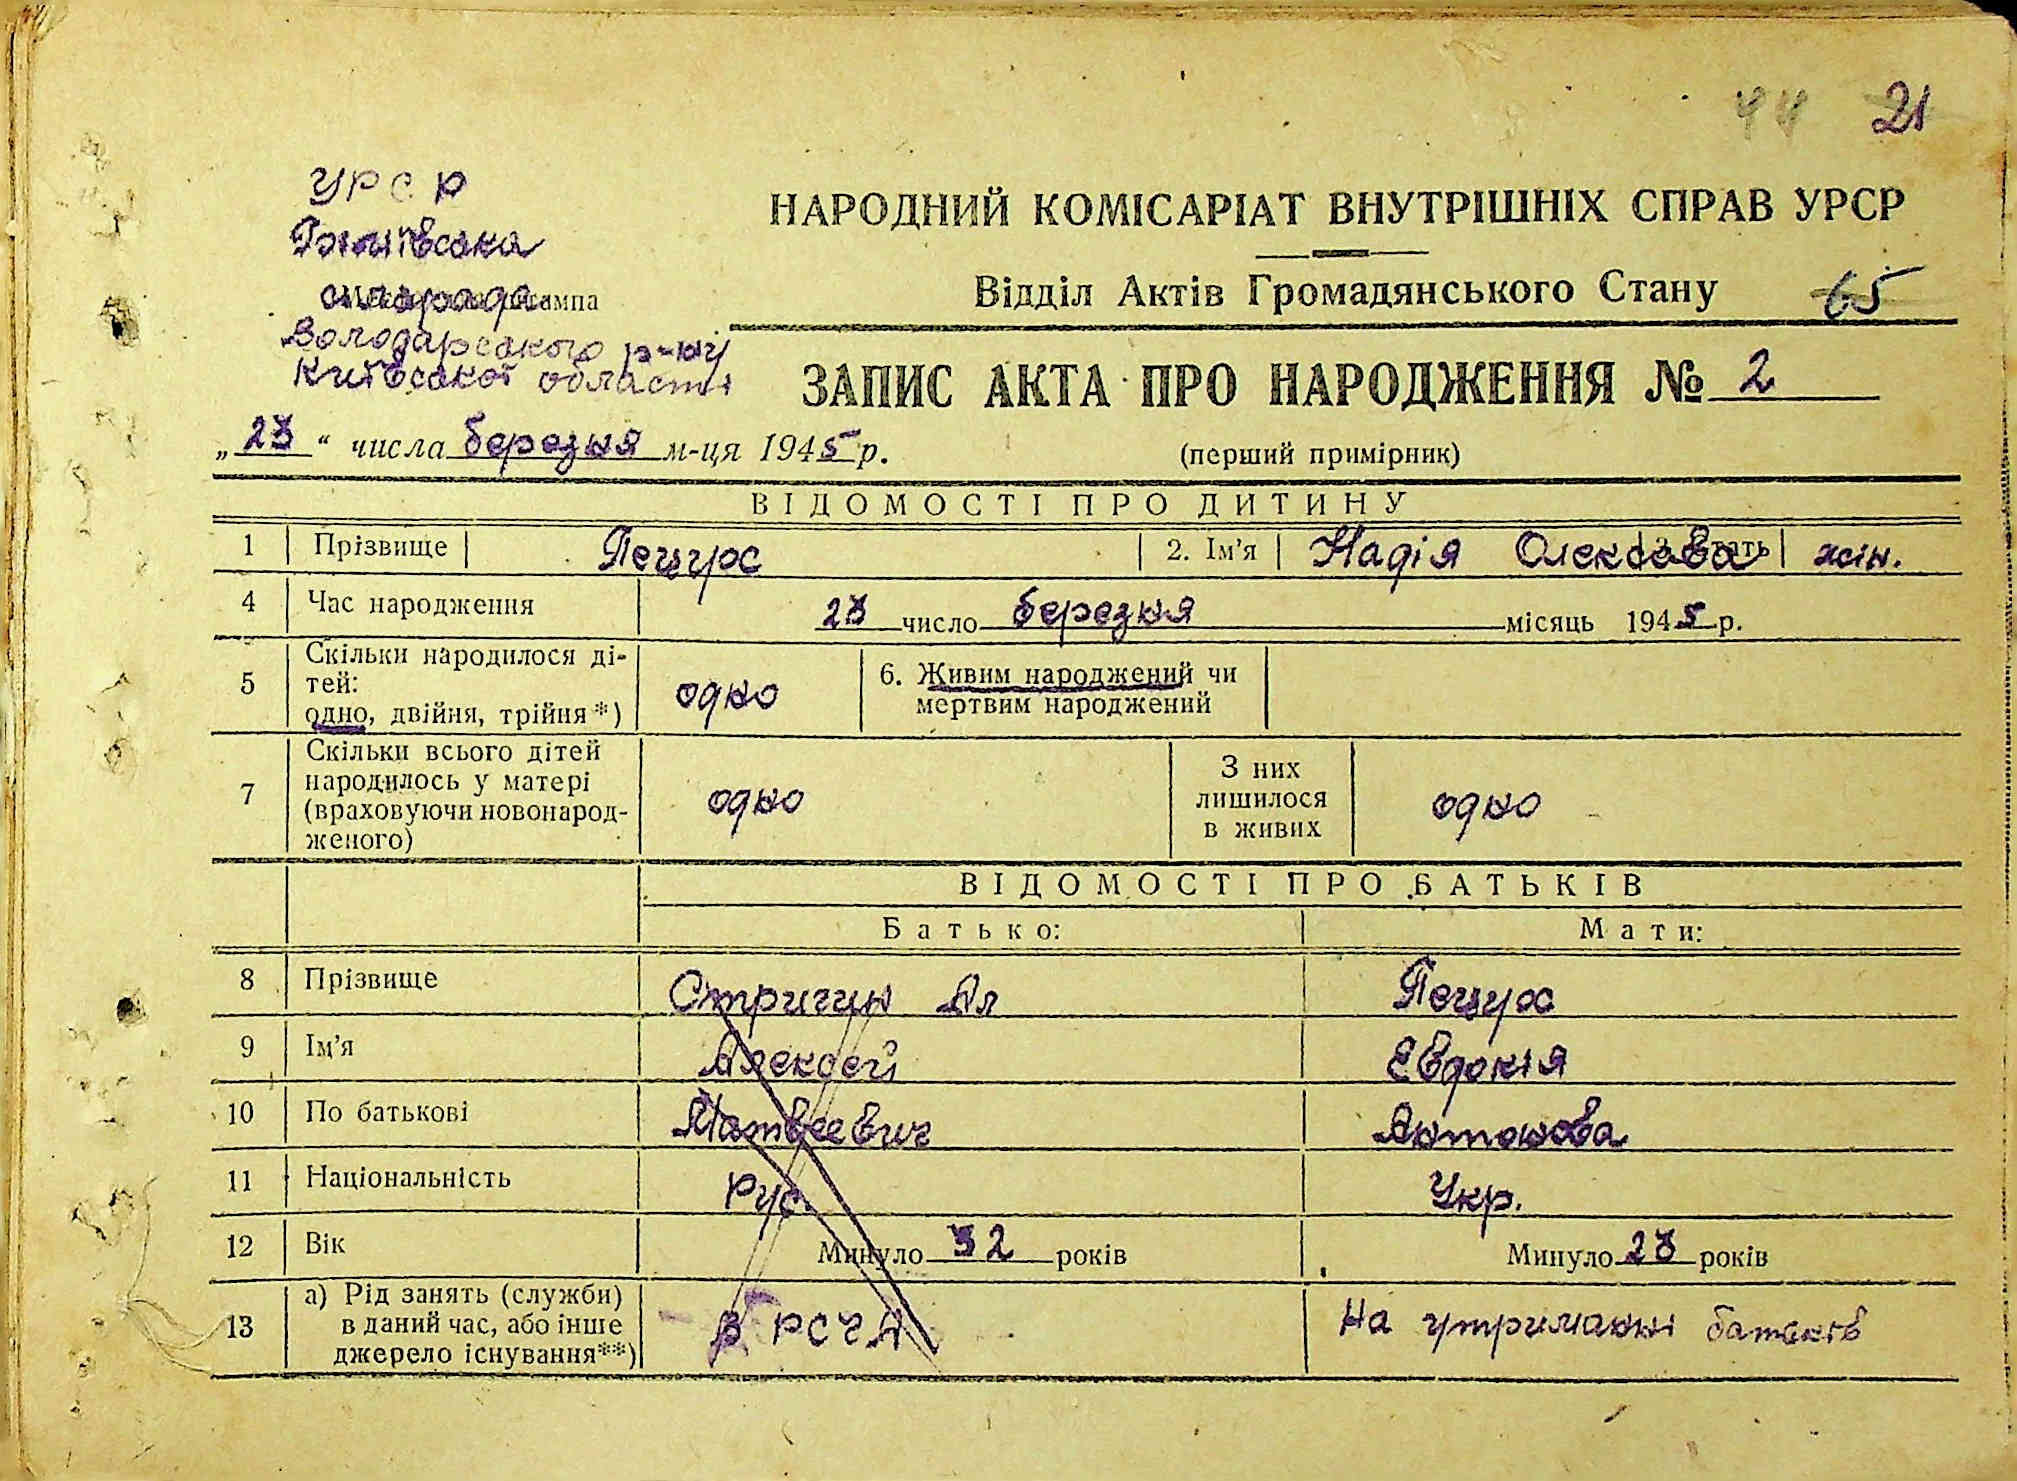 44 21
УРСР
НАРОДНИЙ КОМІСАРІАТ ВНУТРІШНІХ СПРАВ УРСР
сільрада
Відділ Актів Громадянського Стану 65
Володарського р-ну
Київської області
ЗАПИС АКТА ПРО НАРОДЖЕННЯ № 2
„23“ числа березня м-ця 1945 р.
(перший примірник)
ВІДОМОСТІ ПРО ДИТИНУ
1 Прізвище Пецух 2. Ім’я Надія Олексовва 3. Стать жін.
4 Час народження 23 число березня місяць 1945 р.
5 Скільки народилося ді-
тей:
одно, двійня, трійня*) одно 6. Живим народжений чи
мертвим народжений
7 Скільки всього дітей
народилось у матері
(враховуючи новонарод-
женого) одно З них
лишилося
в живих одно
ВІДОМОСТІ ПРО БАТЬКІВ
Батько: Мати:
8 Прізвище Стригин Ал Пецух
9 Ім’я Алексей Евдокія
10 По батькові Матвеевич Антонова
11 Національність Рус. Укр.
12 Вік Минуло 32 років Минуло 23 років
13 а) Рід занять (служби)
в даний час, або інше
джерело існування**) В РСЧА На утриманні батьків